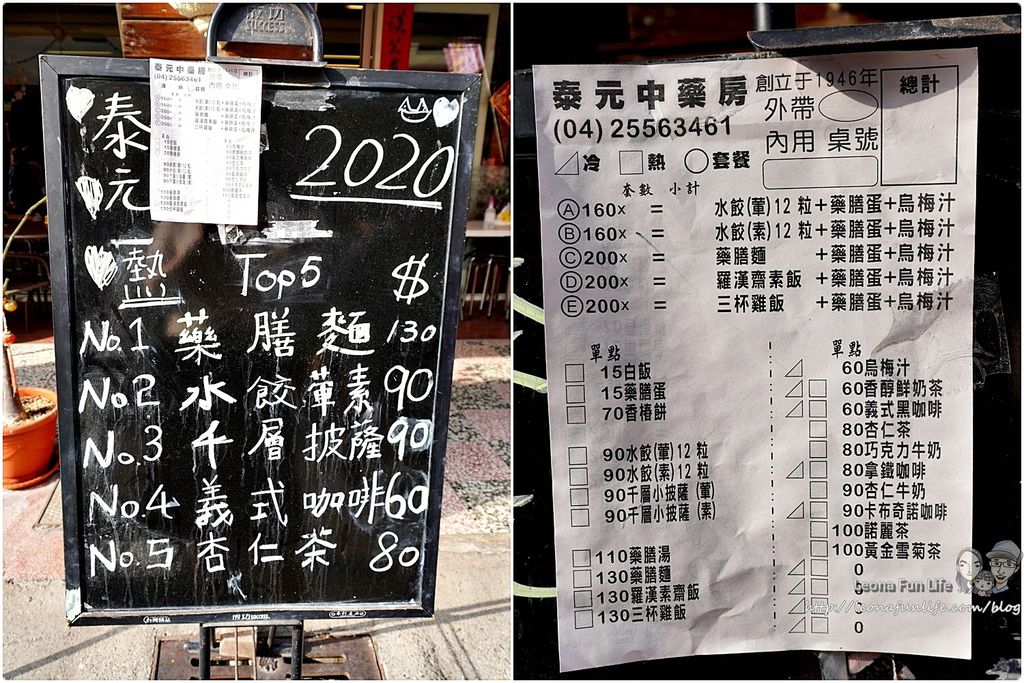 泰元
2020
熱 Top 5 $
No.1 藥膳麵 130
No.2 水餃葷素 90
No.3 千層披薩 90
No.4 義式咖啡 60
No.5 杏仁茶 80
泰元中藥房
(04) 25563461
創立于1946年
外帶
內用 桌號
總計
冷 熱 套餐
套數 小計
Ⓐ160x = 水餃(葷)12 粒+藥膳蛋+烏梅汁
Ⓑ160x = 水餃(素)12 粒+藥膳蛋+烏梅汁
Ⓒ200x = 藥膳麵 +藥膳蛋+烏梅汁
Ⓓ200x = 羅漢齋素飯 +藥膳蛋+烏梅汁
Ⓔ200x = 三杯雞飯 +藥膳蛋+烏梅汁
單點
15白飯
15藥膳蛋
70香椿餅
90水餃(葷)12 粒
90水餃(素)12 粒
90千層小披薩 (葷)
90千層小披薩 (素)
110藥膳湯
130藥膳麵
130羅漢素齋飯
130三杯雞飯
單點
60烏梅汁
60香醇鮮奶茶
60義式黑咖啡
80杏仁茶
80巧克力牛奶
80拿鐵咖啡
90杏仁牛奶
90卡布奇諾咖啡
100諾麗茶
100黃金雪菊茶
0
0
0
0
Leona Fun Life
http://leonafunlife.com/blog